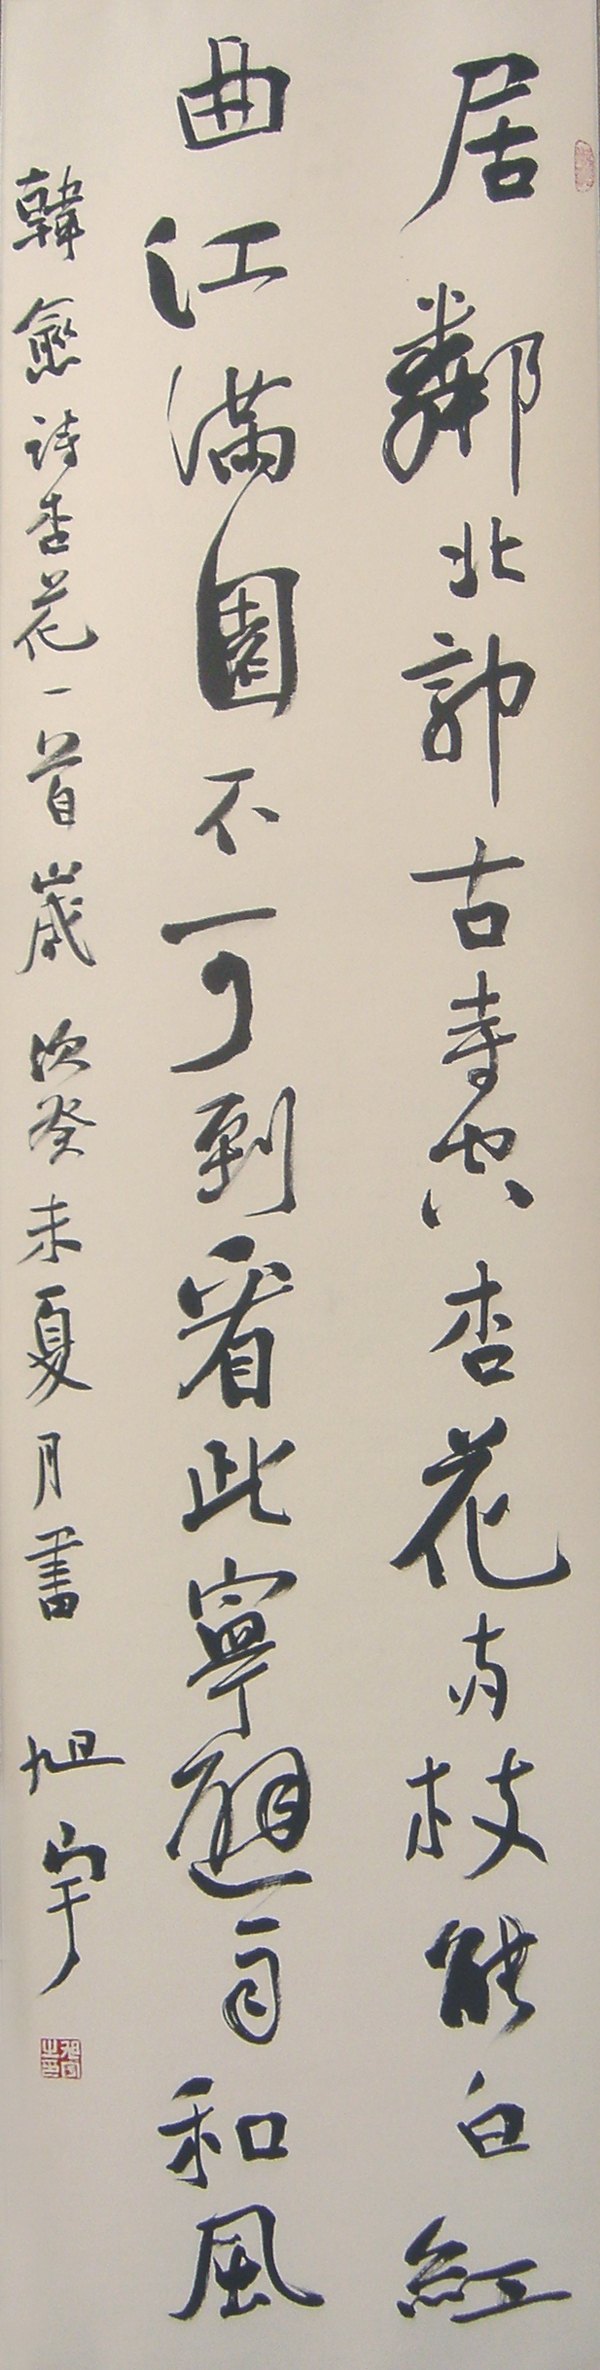 居鄰北郭古寺空杏花兩枝能白紅
曲江滿園不可到看此寧避雨和風
韓愈詩杏花一首歲次癸未夏月書 旭宇
旭宇之印